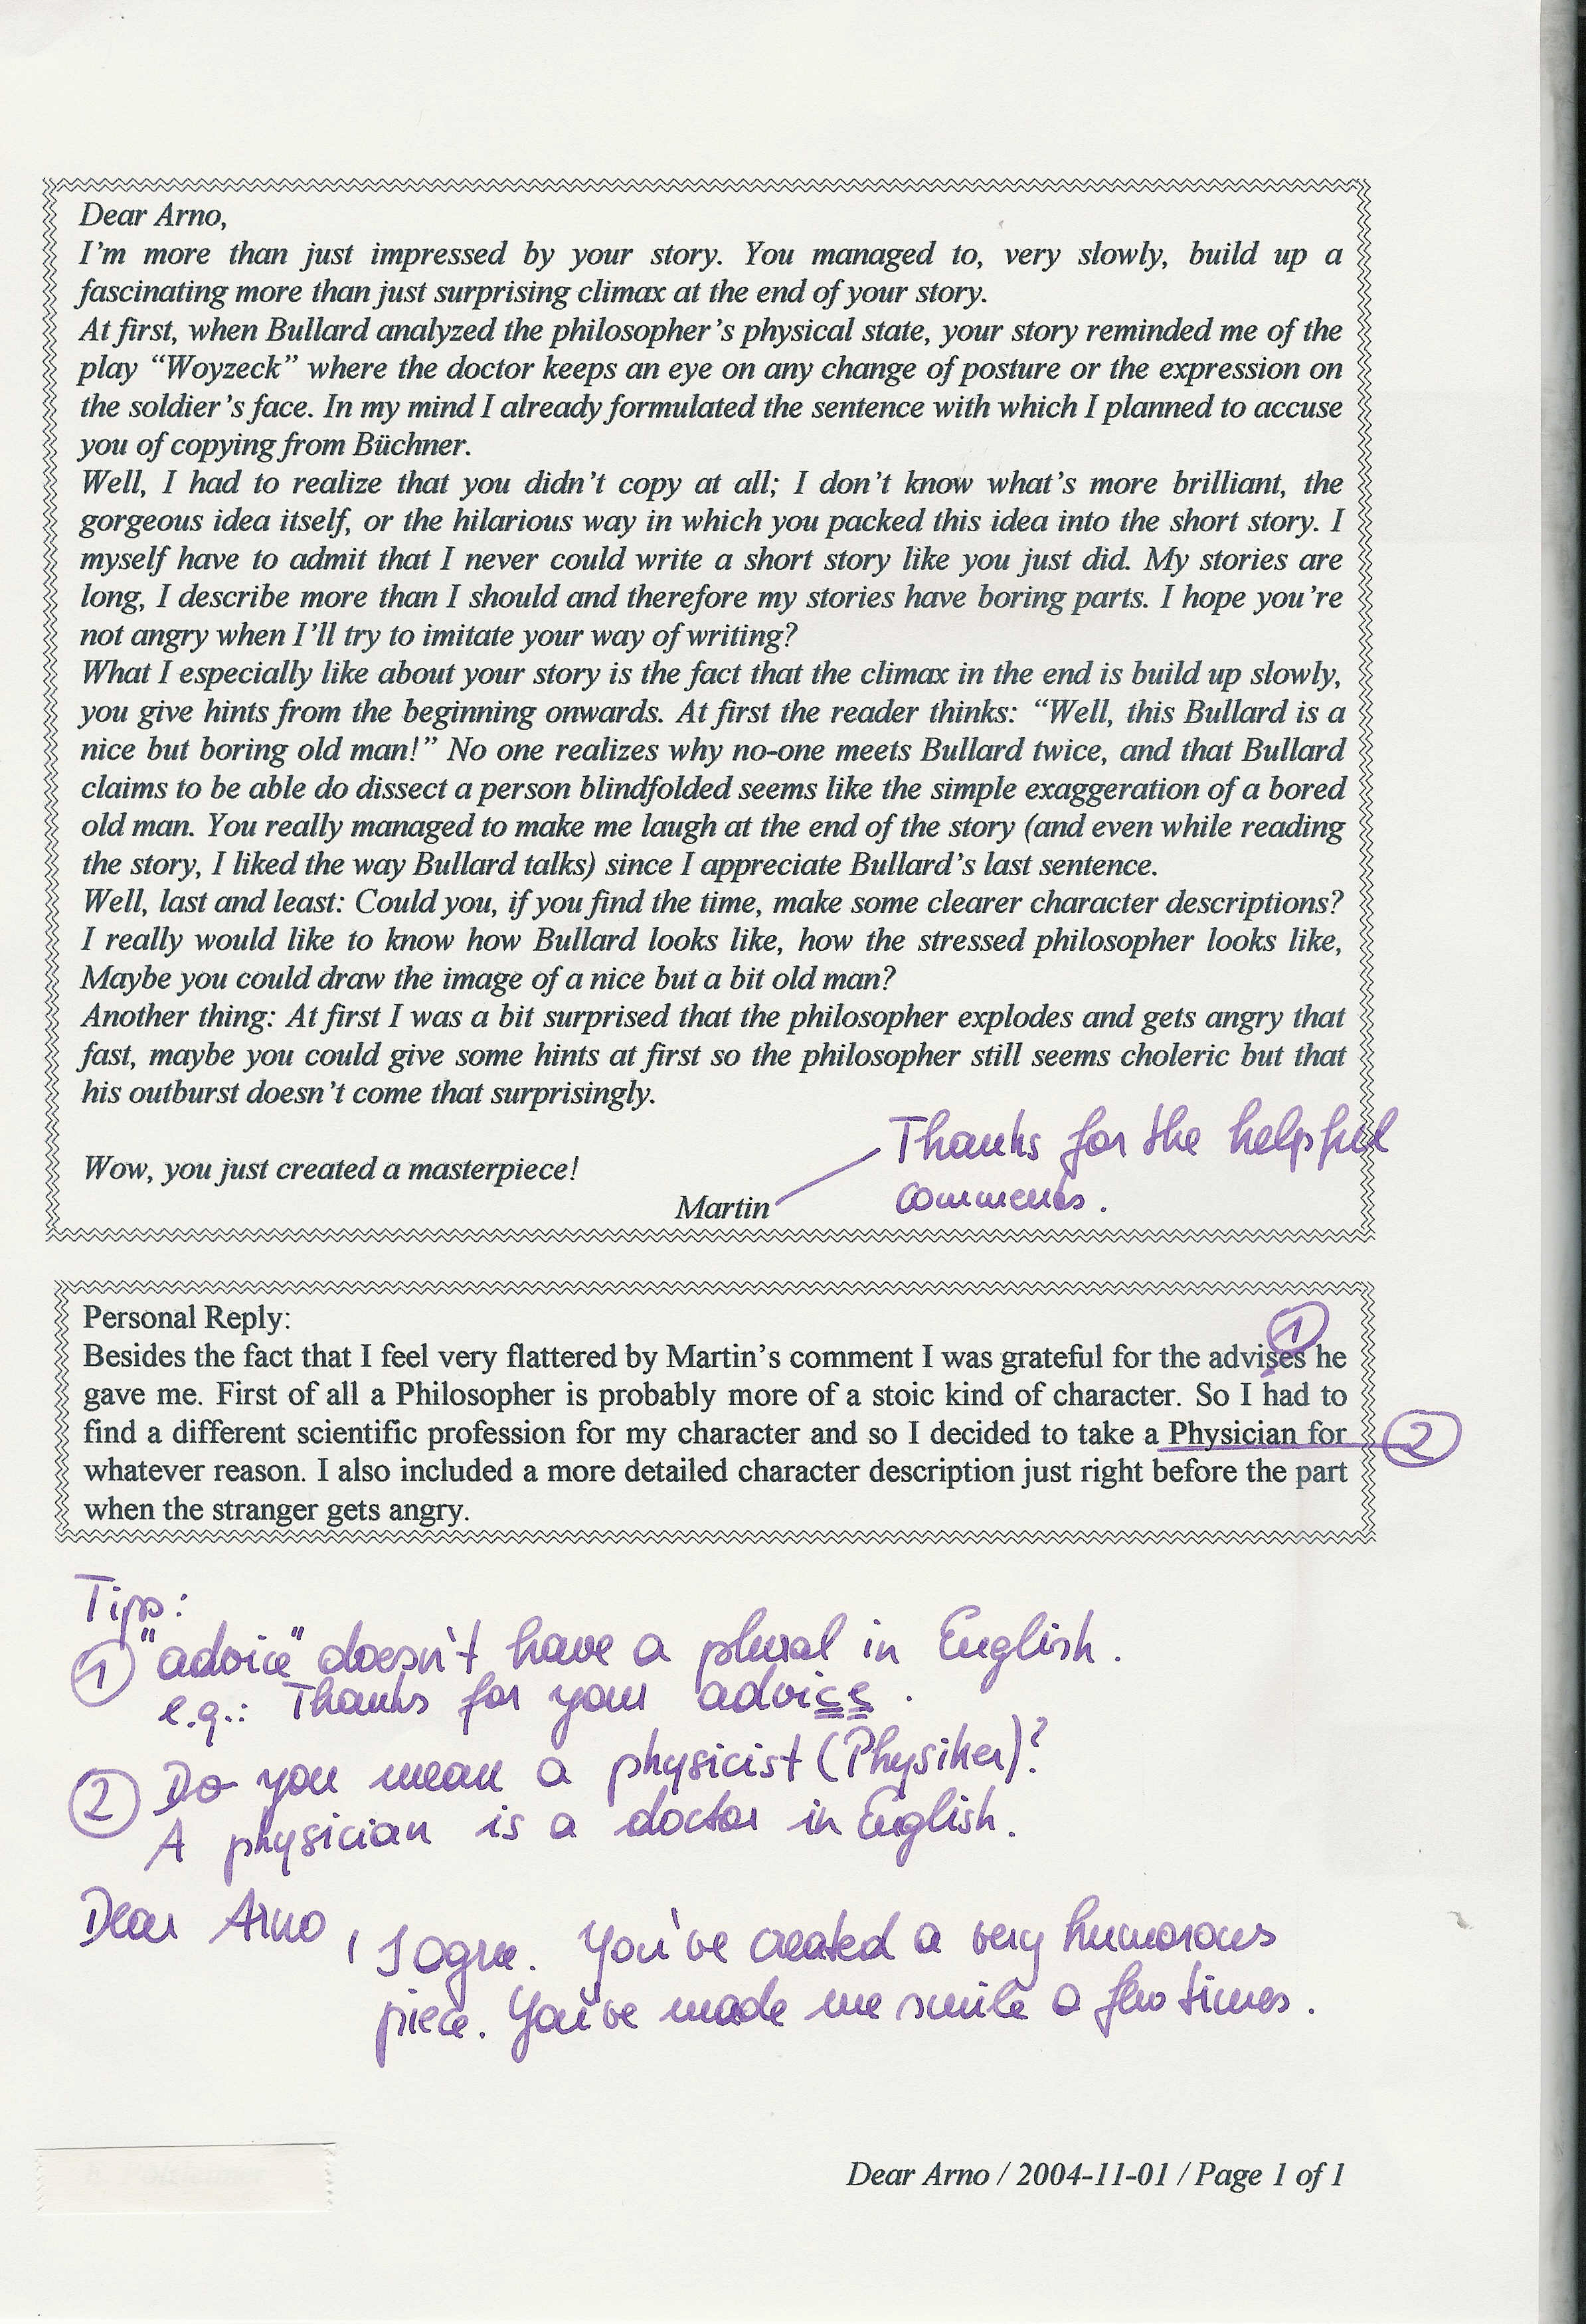 Dear Arno,
I'm more than just impressed by your story. You managed to, very slowly, build up a
fascinating more than just surprising climax at the end of your story.
At first, when Bullard analyzed the philosopher's physical state, your story reminded me of the
play “Woyzeck” where the doctor keeps an eye on any change of posture or the expression on
the soldier's face. In my mind I already formulated the sentence with which I planned to accuse
you of copying from Büchner.
Well, I had to realize that you didn't copy at all; I don't know what's more brilliant, the
gorgeous idea itself, or the hilarious way in which you packed this idea into the short story. I
myself have to admit that I never could write a short story like you just did. My stories are
long, I describe more than I should and therefore my stories have boring parts. I hope you're
not angry when I'll try to imitate your way of writing?
What I especially like about your story is the fact that the climax in the end is build up slowly,
you give hints from the beginning onwards. At first the reader thinks: “Well, this Bullard is a
nice but boring old man!” No one realizes why no-one meets Bullard twice, and that Bullard
claims to be able do dissect a person blindfolded seems like the simple exaggeration of a bored
old man. You really managed to make me laugh at the end of the story (and even while reading
the story, I liked the way Bullard talks) since I appreciate Bullard's last sentence.
Well, last and least: Could you, if you find the time, make some clearer character descriptions?
I really would like to know how Bullard looks like, how the stressed philosopher looks like,
Maybe you could draw the image of a nice but a bit old man?
Another thing: At first I was a bit surprised that the philosopher explodes and gets angry that
fast, maybe you could give some hints at first so the philosopher still seems choleric but that
his outburst doesn't come that surprisingly.
Thanks for the helpful
Wow, you just created a masterpiece!
comments.
Martin
Personal Reply:
1
Besides the fact that I feel very flattered by Martin's comment I was grateful for the advises he
gave me. First of all a Philosopher is probably more of a stoic kind of character. So I had to
find a different scientific profession for my character and so I decided to take a Physician for
2
whatever reason. I also included a more detailed character description just right before the part
when the stranger gets angry.
Tips:
1 "advice" doesn't have a plural in English.
e.g.: Thanks for your advice.
2 Do you mean a physicist (Physiker)?
A physician is a doctor in English.
Dear Arno, I agree. You've created a very humorous
piece. You've made me smile a few times.
Dear Arno / 2004-11-01 / Page 1 of 1